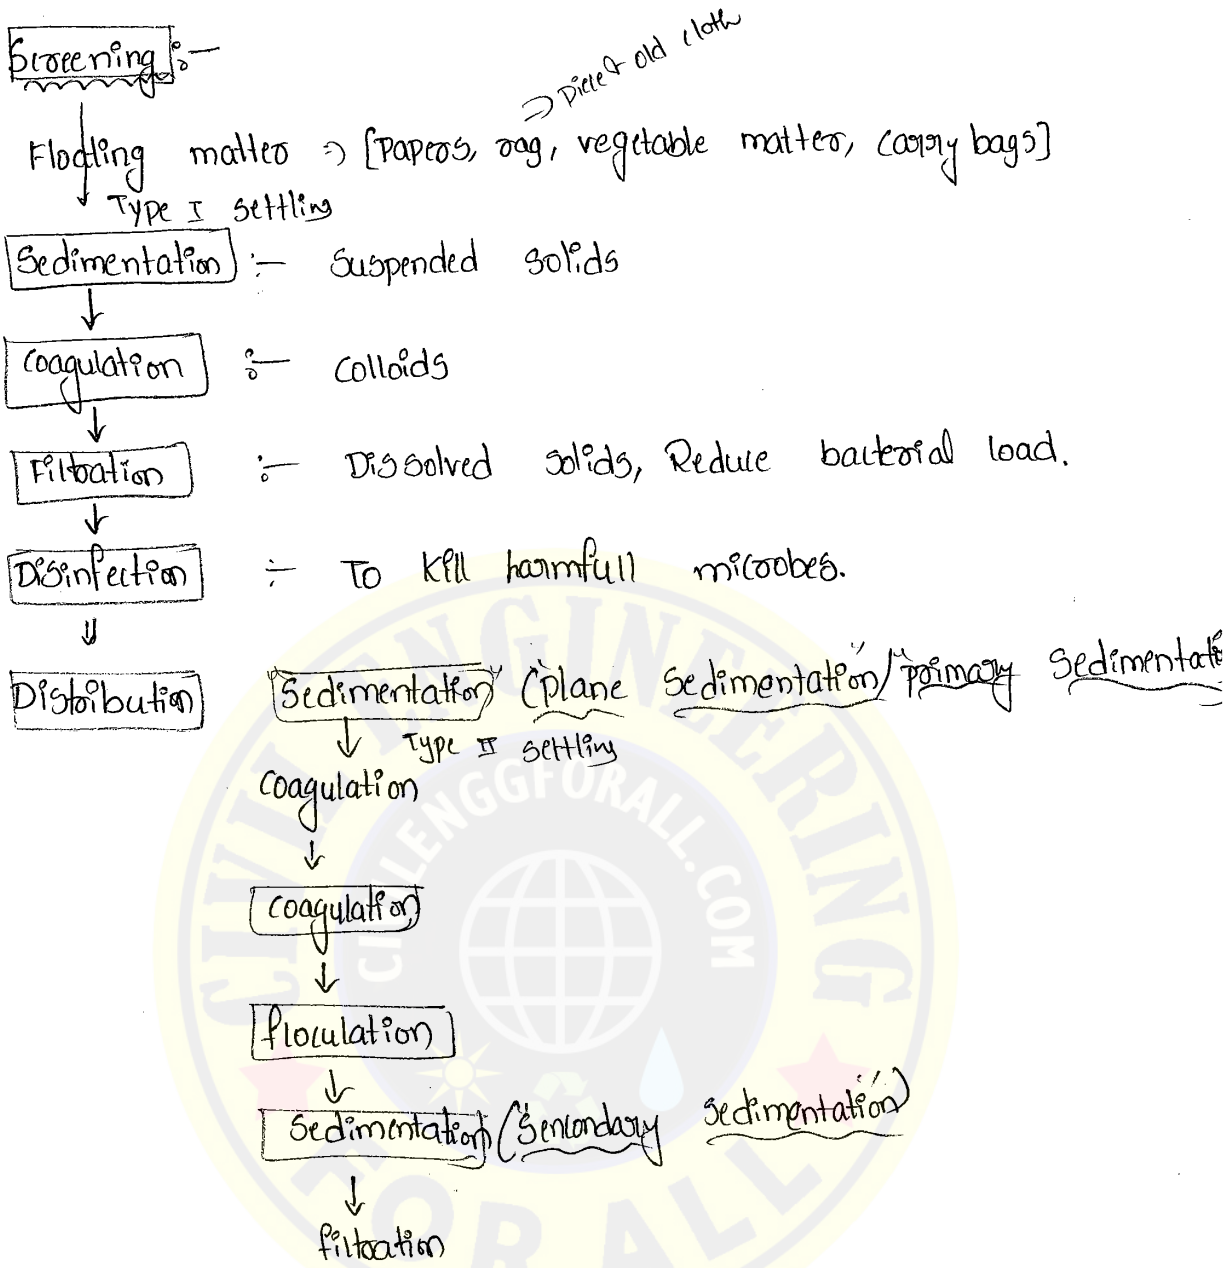 Screening :-
⇒ Piece of old cloth
Floating matter ⇒ [Papers, rag, vegetable matter, carry bags]
Type I settling
Sedimentation :- Suspended solids
Coagulation :- Colloids
Filtration :- Dissolved solids, Reduce bacterial load.
Disinfection :- To Kill harmfull microbes.
Distribution
Sedimentation ("plane Sedimentation"/"primary Sedimentati
Type II settling
Coagulation
Coagulation
floculation
Sedimentation ("Sencondary Sedimentation")
filtration
CIVIL ENGINEERING
FOR ALL
CIVILENGGFORALL.COM